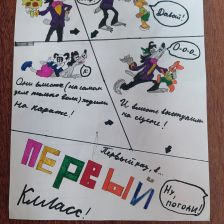 Давай!
О-о-о.
Они вместе (на самом
деле только волк) ходили
на каратэ!
И вместе выступали
на сцене!
Первый раз, в...
ПЕРВЫЙ
Класс!
Ну,
погоди!